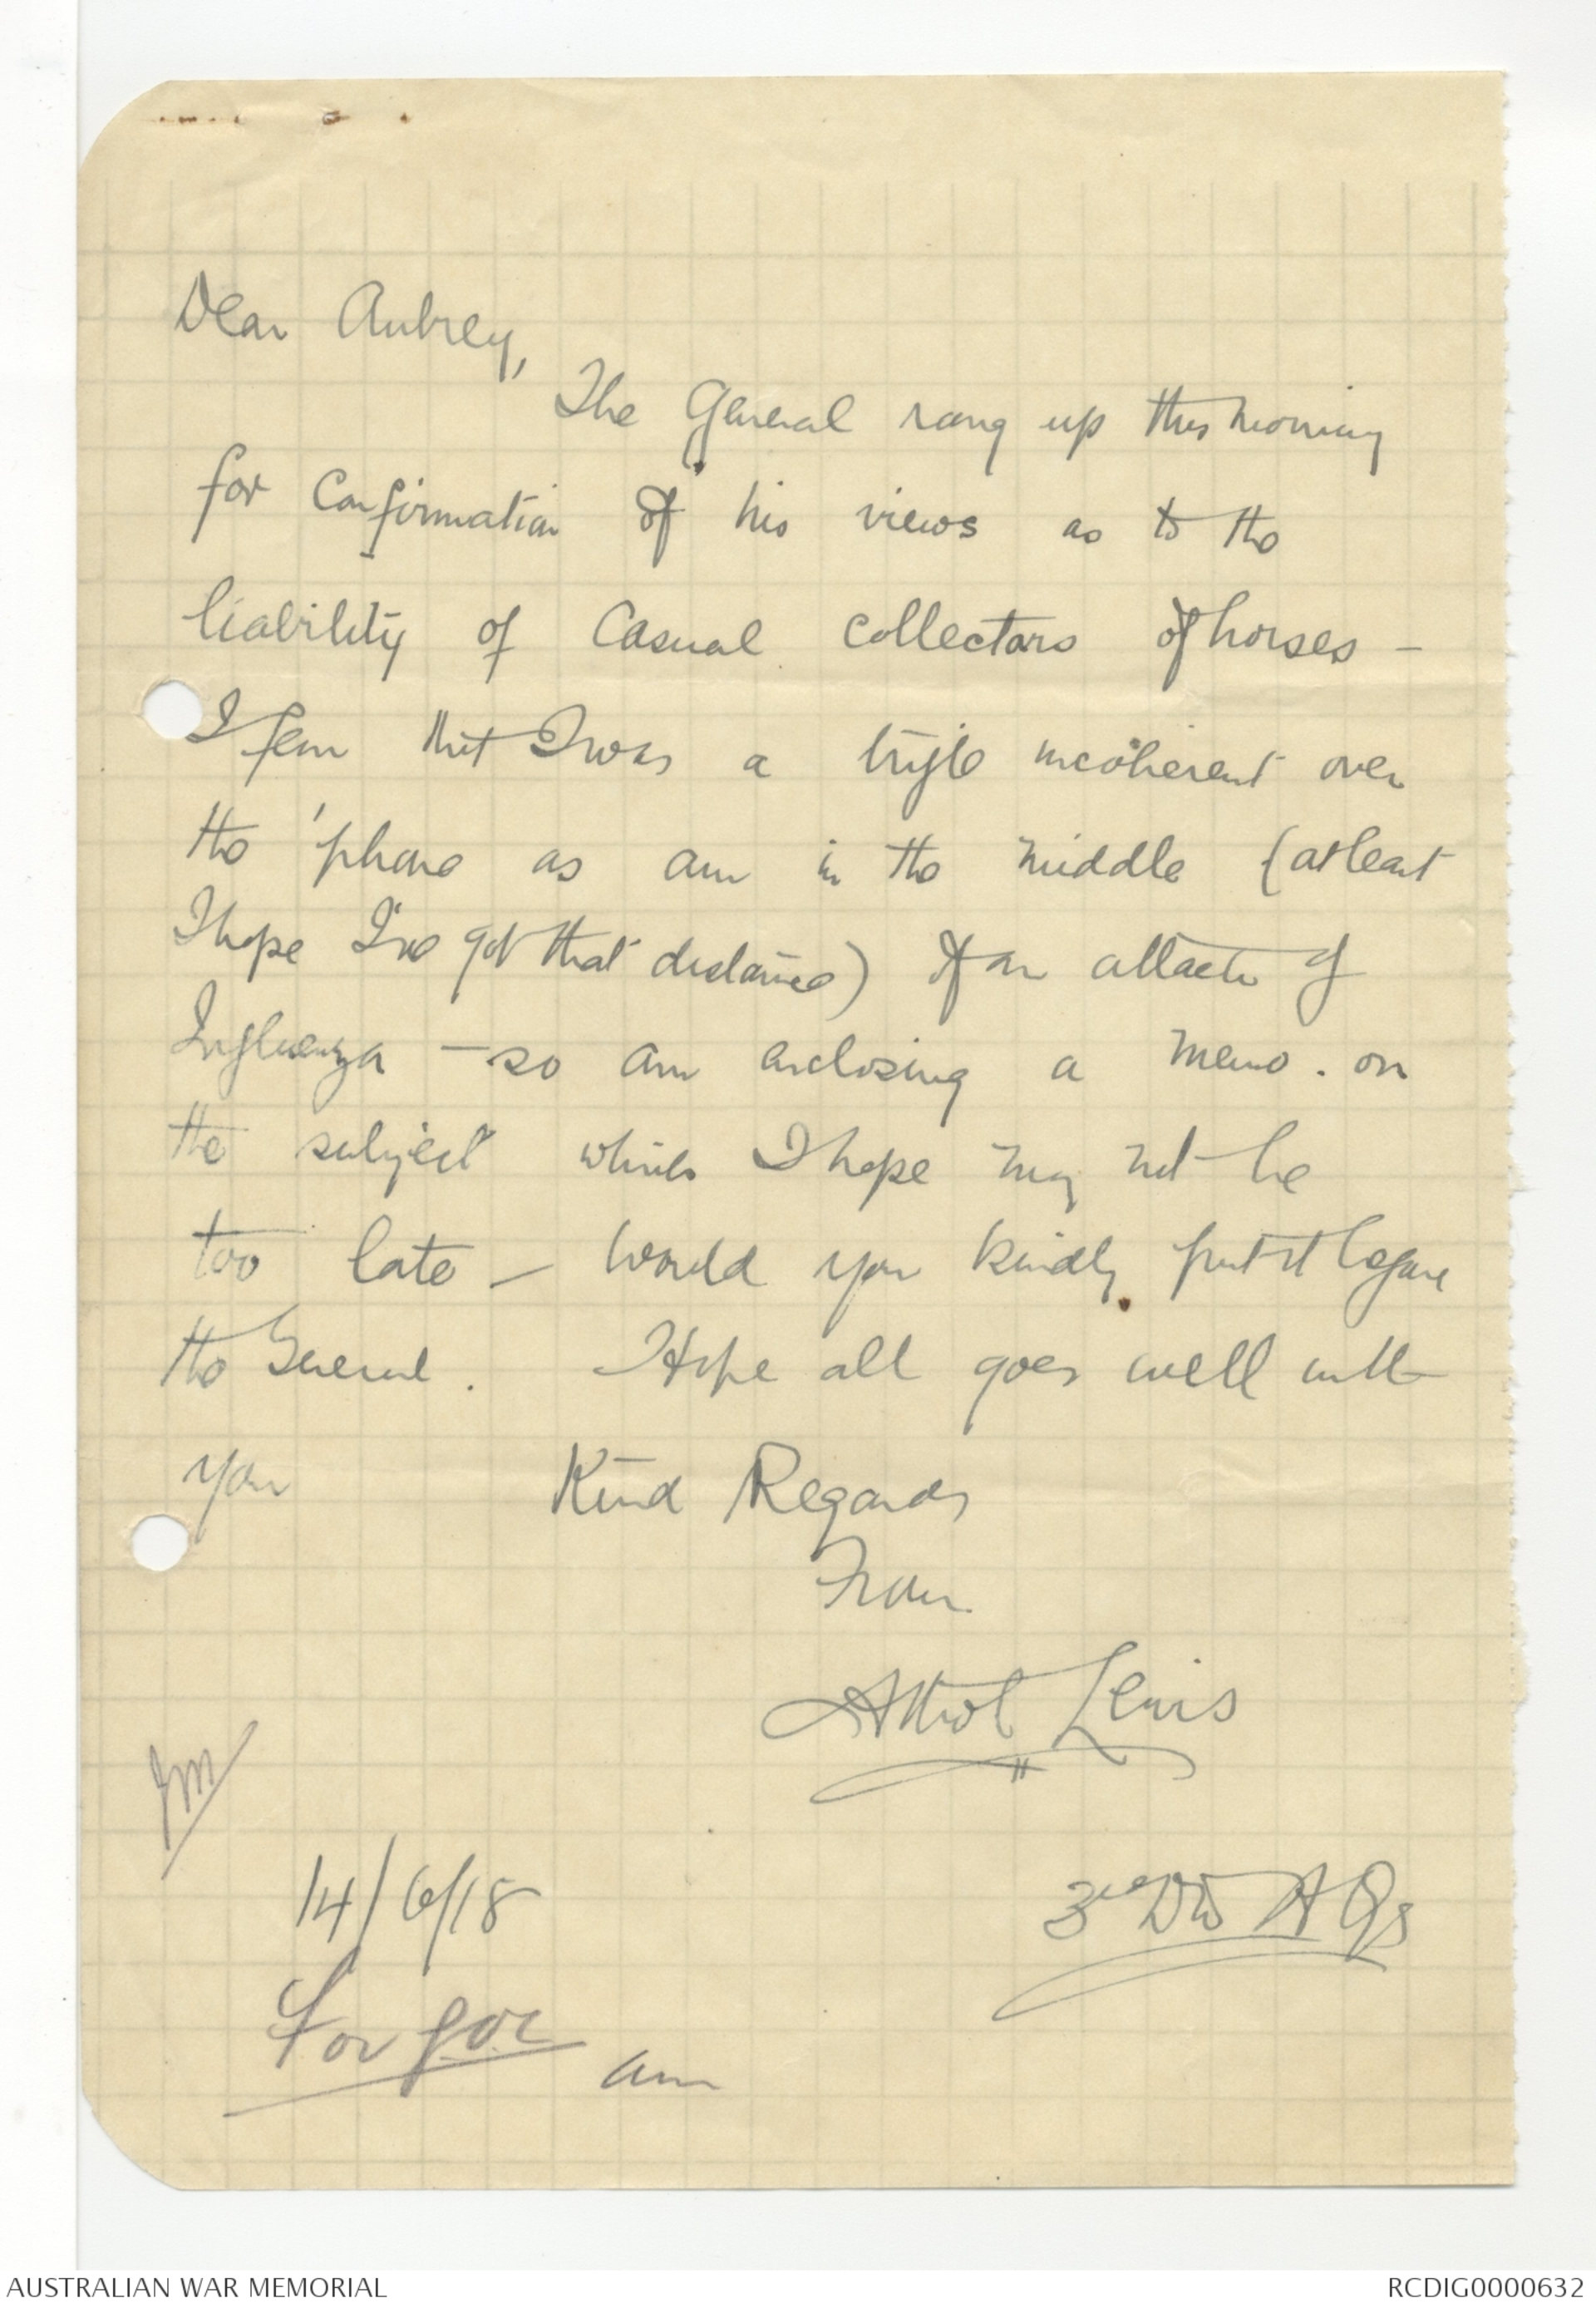 Dear Aubrey,
The General rang up this morning
for Confirmation of his views as to the
liability of Casual collectors of horses –
I fear that I was a trifle incoherent over
the 'phone as am in the middle (at least
I hope I've got that distance) of an attack of
Influenza – so am enclosing a memo. on
the subject which I hope may not be
too late – Would you kindly put it before
the General. Hope all goes well with
you Kind Regards
From
Lewis
JM
14/6/18
3rd Div HQs
For GOC
am
AUSTRALIAN WAR MEMORIAL
RCDIG0000632